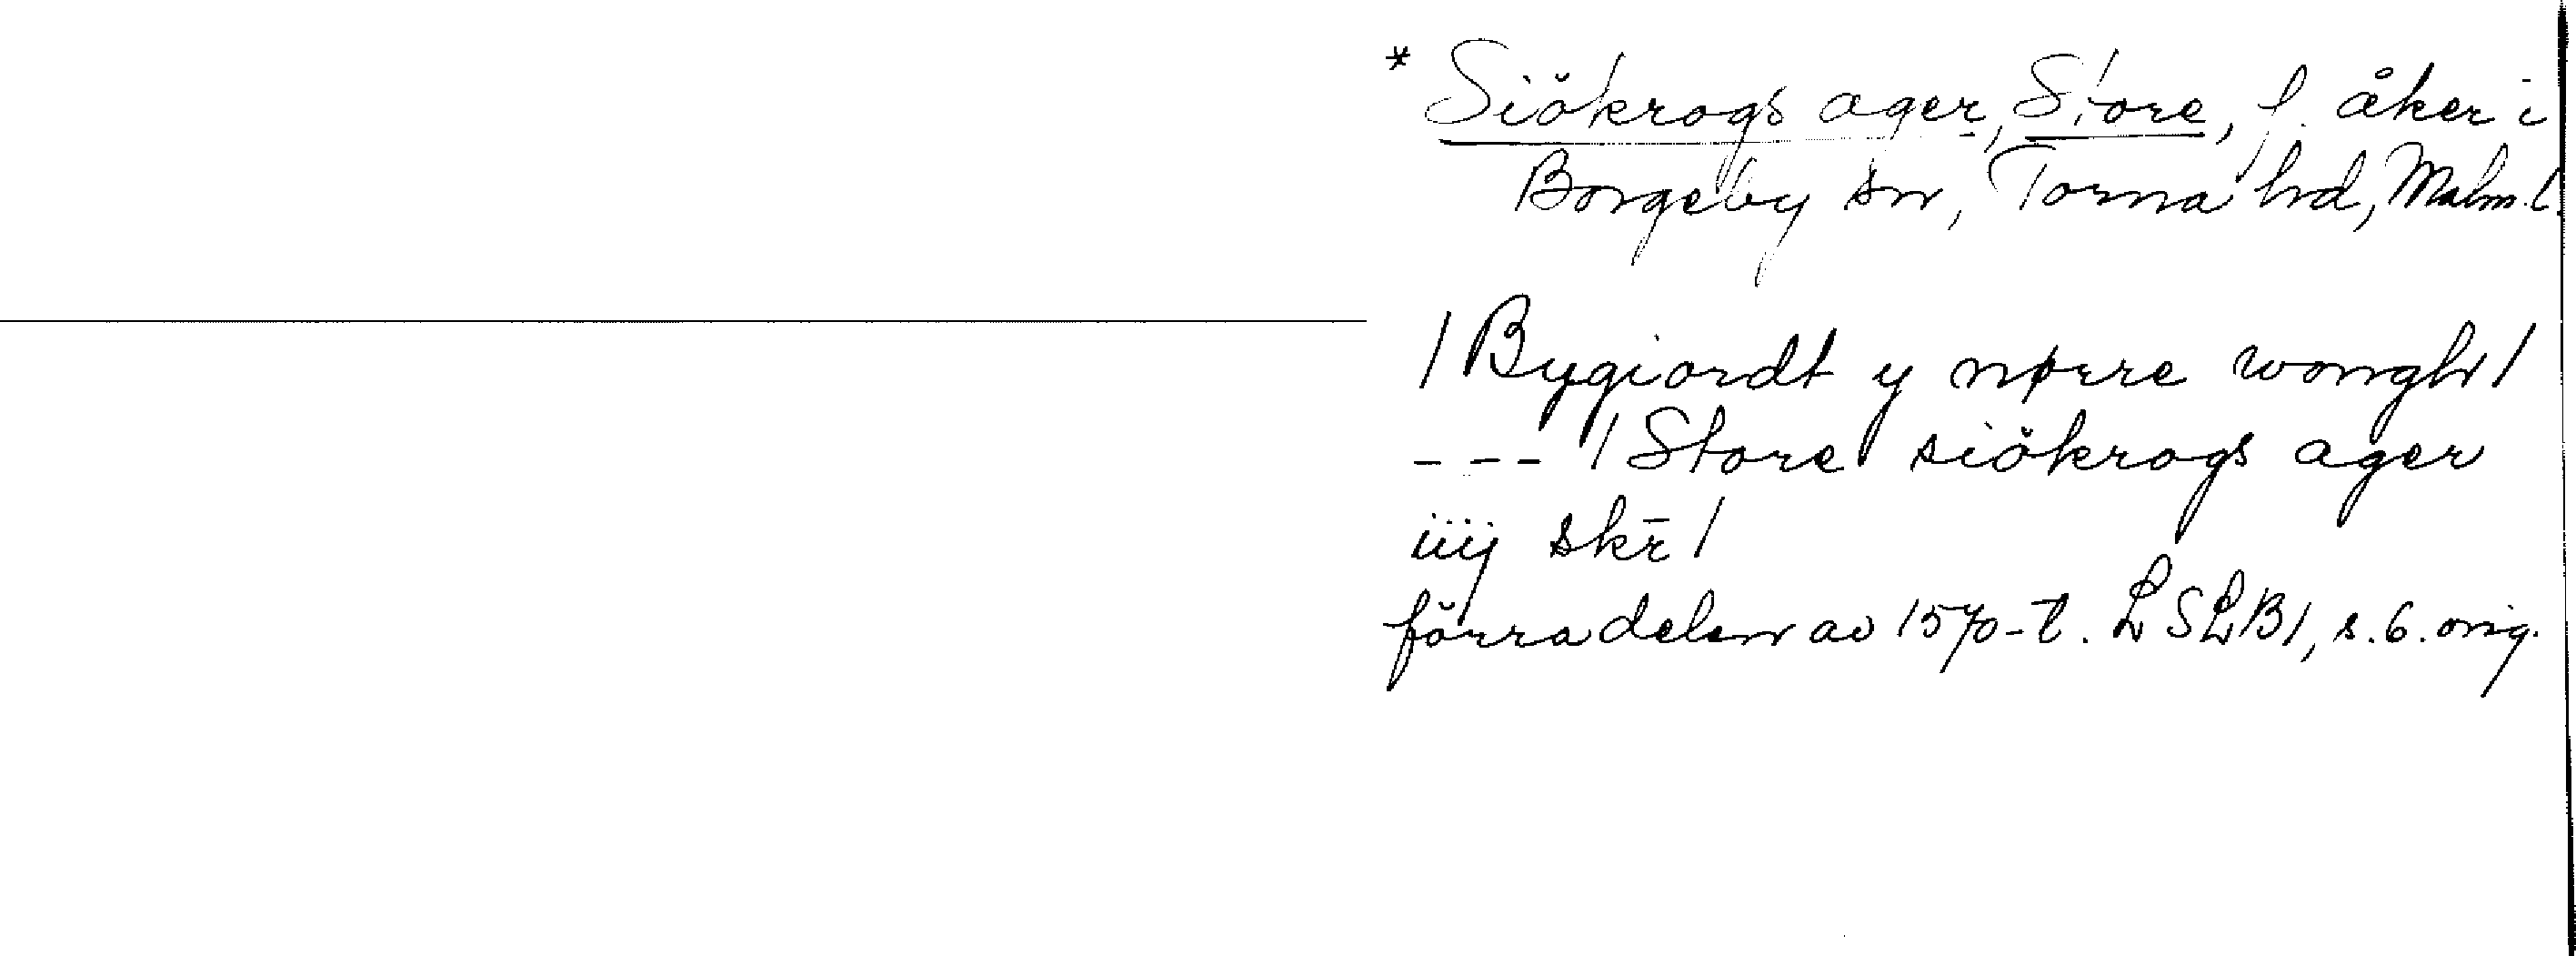 * Siökrogs ager, Store, f. åker i
Borgeby sn, Torna hd, Malm. l.
/ Bygiordt y nørre wongh /
--- / Store siökrogs ager
iiij skr̄ /
förra delen av 1570-t. LSLB1, s. 6. orig.